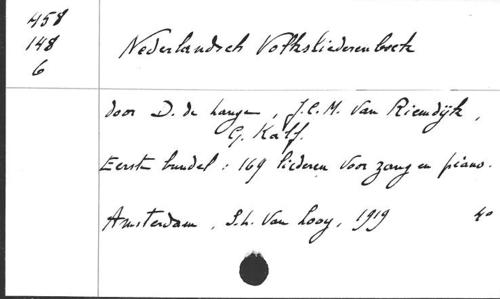 458
148
6
Nederlandsch Volksliederenboek
door D. de Lange, J.C.M. van Riemdijk,
G. Kalf.
Eerste bundel: 169 liederen voor zang en piano.
Amsterdam, S.L. van Looy, 1919 4o